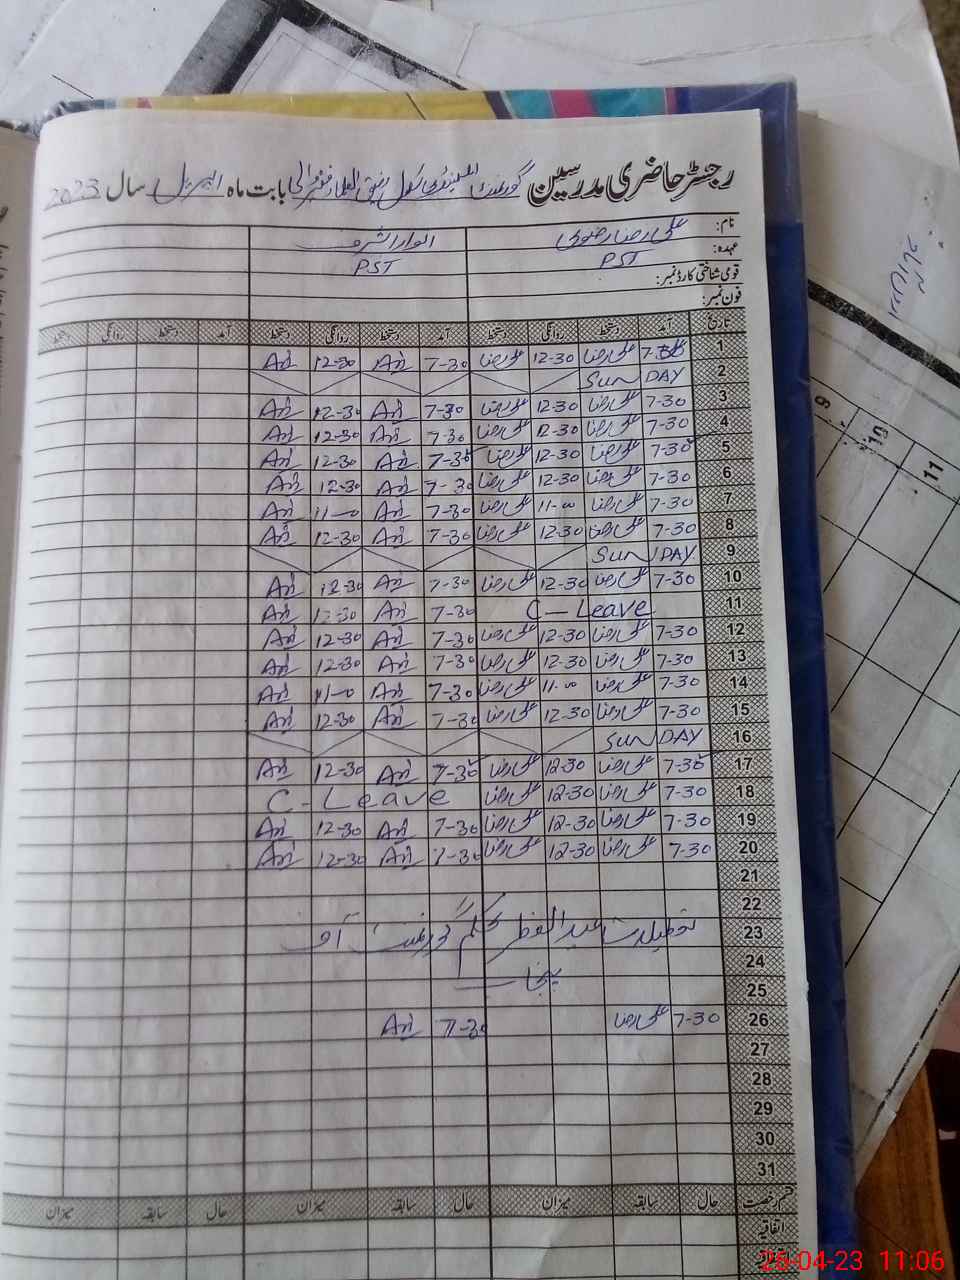 رجسٹر حاضری مدرسین گورنمنٹ ایلیمنٹری سکول بابت ماہ اپریل سال 2023
نام: علی رضا رضوی انوار اشرف
عہدہ: PST PST
قومی شناختی کارڈ نمبر:
فون نمبر:
تاریخ آمد دستخط روانگی دستخط آمد دستخط روانگی دستخط آمد دستخط روانگی دستخط
1 7-30 علی رضا 12-30 علی رضا 7-30 Ari 12-30 Ari
2 SUN DAY
3 7-30 علی رضا 12-30 علی رضا 7-30 Ari 12-30 Ari
4 7-30 علی رضا 12-30 علی رضا 7-30 Ari 12-30 Ari
5 7-30 علی رضا 12-30 علی رضا 7-30 Ari 12-30 Ari
6 7-30 علی رضا 12-30 علی رضا 7-30 Ari 12-30 Ari
7 7-30 علی رضا 11-00 علی رضا 7-30 Ari 11-0 Ari
8 7-30 علی رضا 12-30 علی رضا 7-30 Ari 12-30 Ari
9 SUN DAY
10 7-30 علی رضا 12-30 علی رضا 7-30 Ari 12-30 Ari
11 C-Leave 7-30 Ari 12-30 Ari
12 7-30 علی رضا 12-30 علی رضا 7-30 Ari 12-30 Ari
13 7-30 علی رضا 12-30 علی رضا 7-30 Ari 12-30 Ari
14 7-30 علی رضا 11-00 علی رضا 7-30 Ari 11-0 Ari
15 7-30 علی رضا 12-30 علی رضا 7-30 Ari 12-30 Ari
16 SUN DAY
17 7-30 علی رضا 12-30 علی رضا 7-30 Ari 12-30 Ari
18 7-30 علی رضا 12-30 علی رضا C-Leave
19 7-30 علی رضا 12-30 علی رضا 7-30 Ari 12-30 Ari
20 7-30 علی رضا 12-30 علی رضا 7-30 Ari 12-30 Ari
21
22
23 تعطیلات عید الفطر بحکم گورنمنٹ آف
24 پنجاب
25
26 7-30 علی رضا 7-30 Ari
27
28
29
30
31
قسم رخصت حال سابقہ میزان حال سابقہ میزان حال سابقہ میزان
اتفاقیہ
9
10
11
26-04-23 11:06